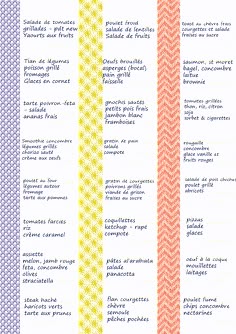 Salade de tomates
grillades - pdt new
Yaourts aux fruits
Tian de légumes
poisson grillé
fromages
Glaces en cornet
tarte poivron-feta
- salade
ananas frais
Smoothie concombre
légumes grillés
chorizo sauté
crème aux œufs
poulet au four
légumes autour
fromage
tarte aux pommes
tomates farcies
riz
crème caramel
assiette
melon, jamb rouge
feta, concombre
olives
straciatella
steak haché
haricots verts
tarte aux prunes
poulet froid
salade de lentilles
Salade de fruits
Oeufs brouillés
asperges (bocal)
pain grillé
faisselle
gnochis sautés
petits pois frais
jambon blanc
framboises
gratin de pdt
salade
compote
gratin de courgettes
poivrons grillés
viande de grison
fraises au sucre
coquillettes
ketchup - rapé
compote
pâtes al'arabiata
salade
panacotta
flan courgettes
chèvre
semoule
pêches pochées
toast au chèvre frais
courgettes et salade
fraises au sucre
saumon, st moret
bagel, concombre
laitue
brownie
tomates grillées
thon, riz, citron
soja
sorbet & cigarettes
rougaille
concombre
glace vanille et
fruits rouges
salade de pois chiches
poulet grillé
abricots
pizzas
salade
glaces
oeuf à la coque
mouillettes
laitages
poulet fumé
chips concombre
nectarines